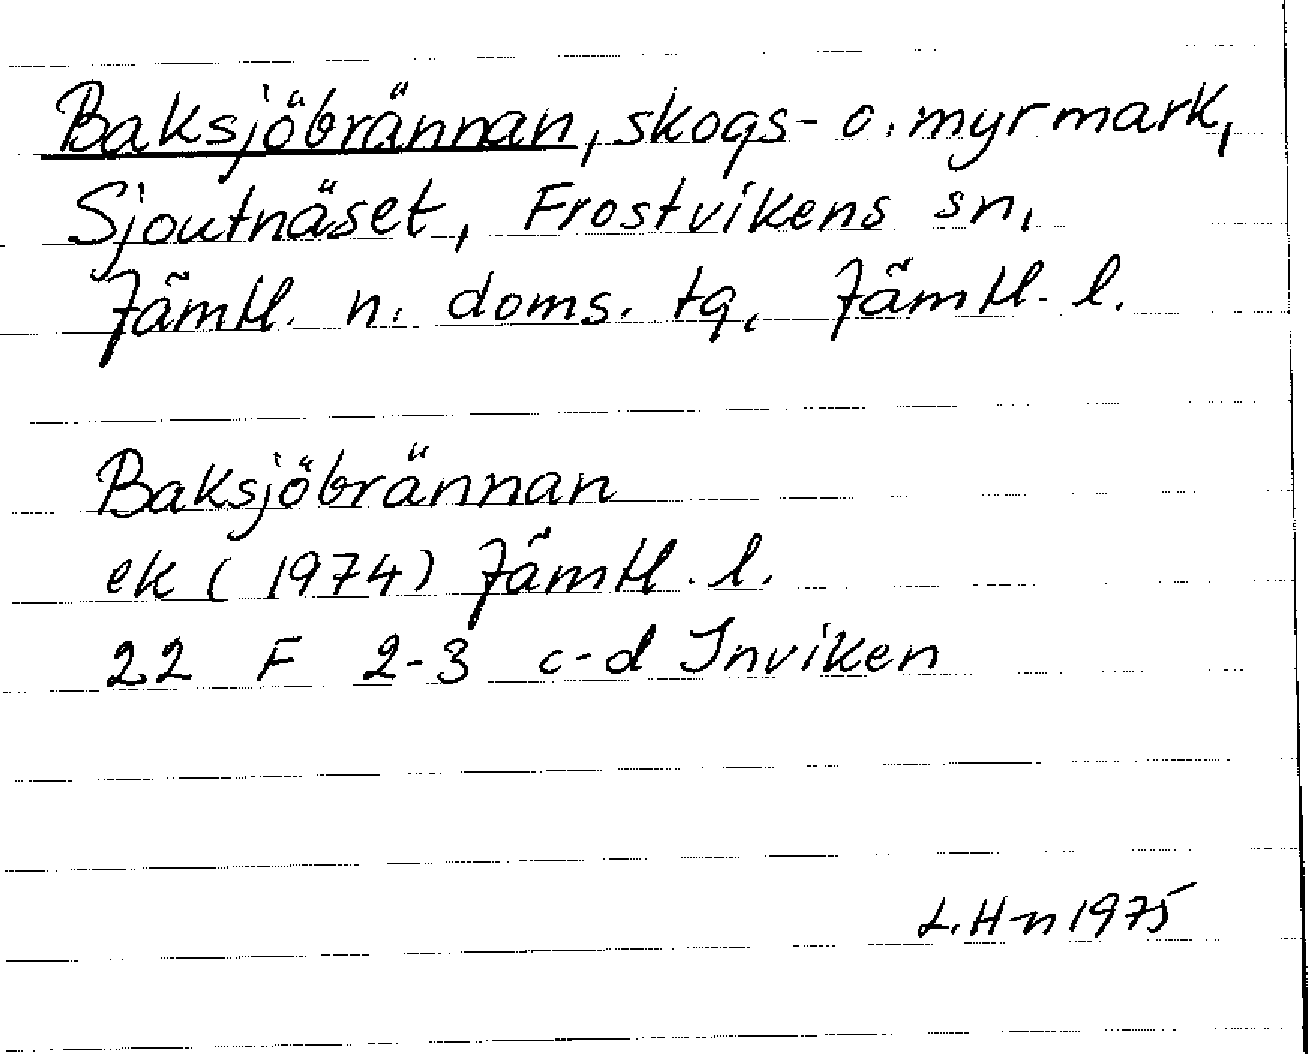 Baksjöbrännan, skogs- o. myrmark,
Sjoutnäset, Frostvikens sn,
Jämtl. n. doms. tg, Jämtl. l.
Baksjöbrännan
ek (1974) Jämtl. l.
22 F 2-3 c-d Inviken
L. H-n 1975